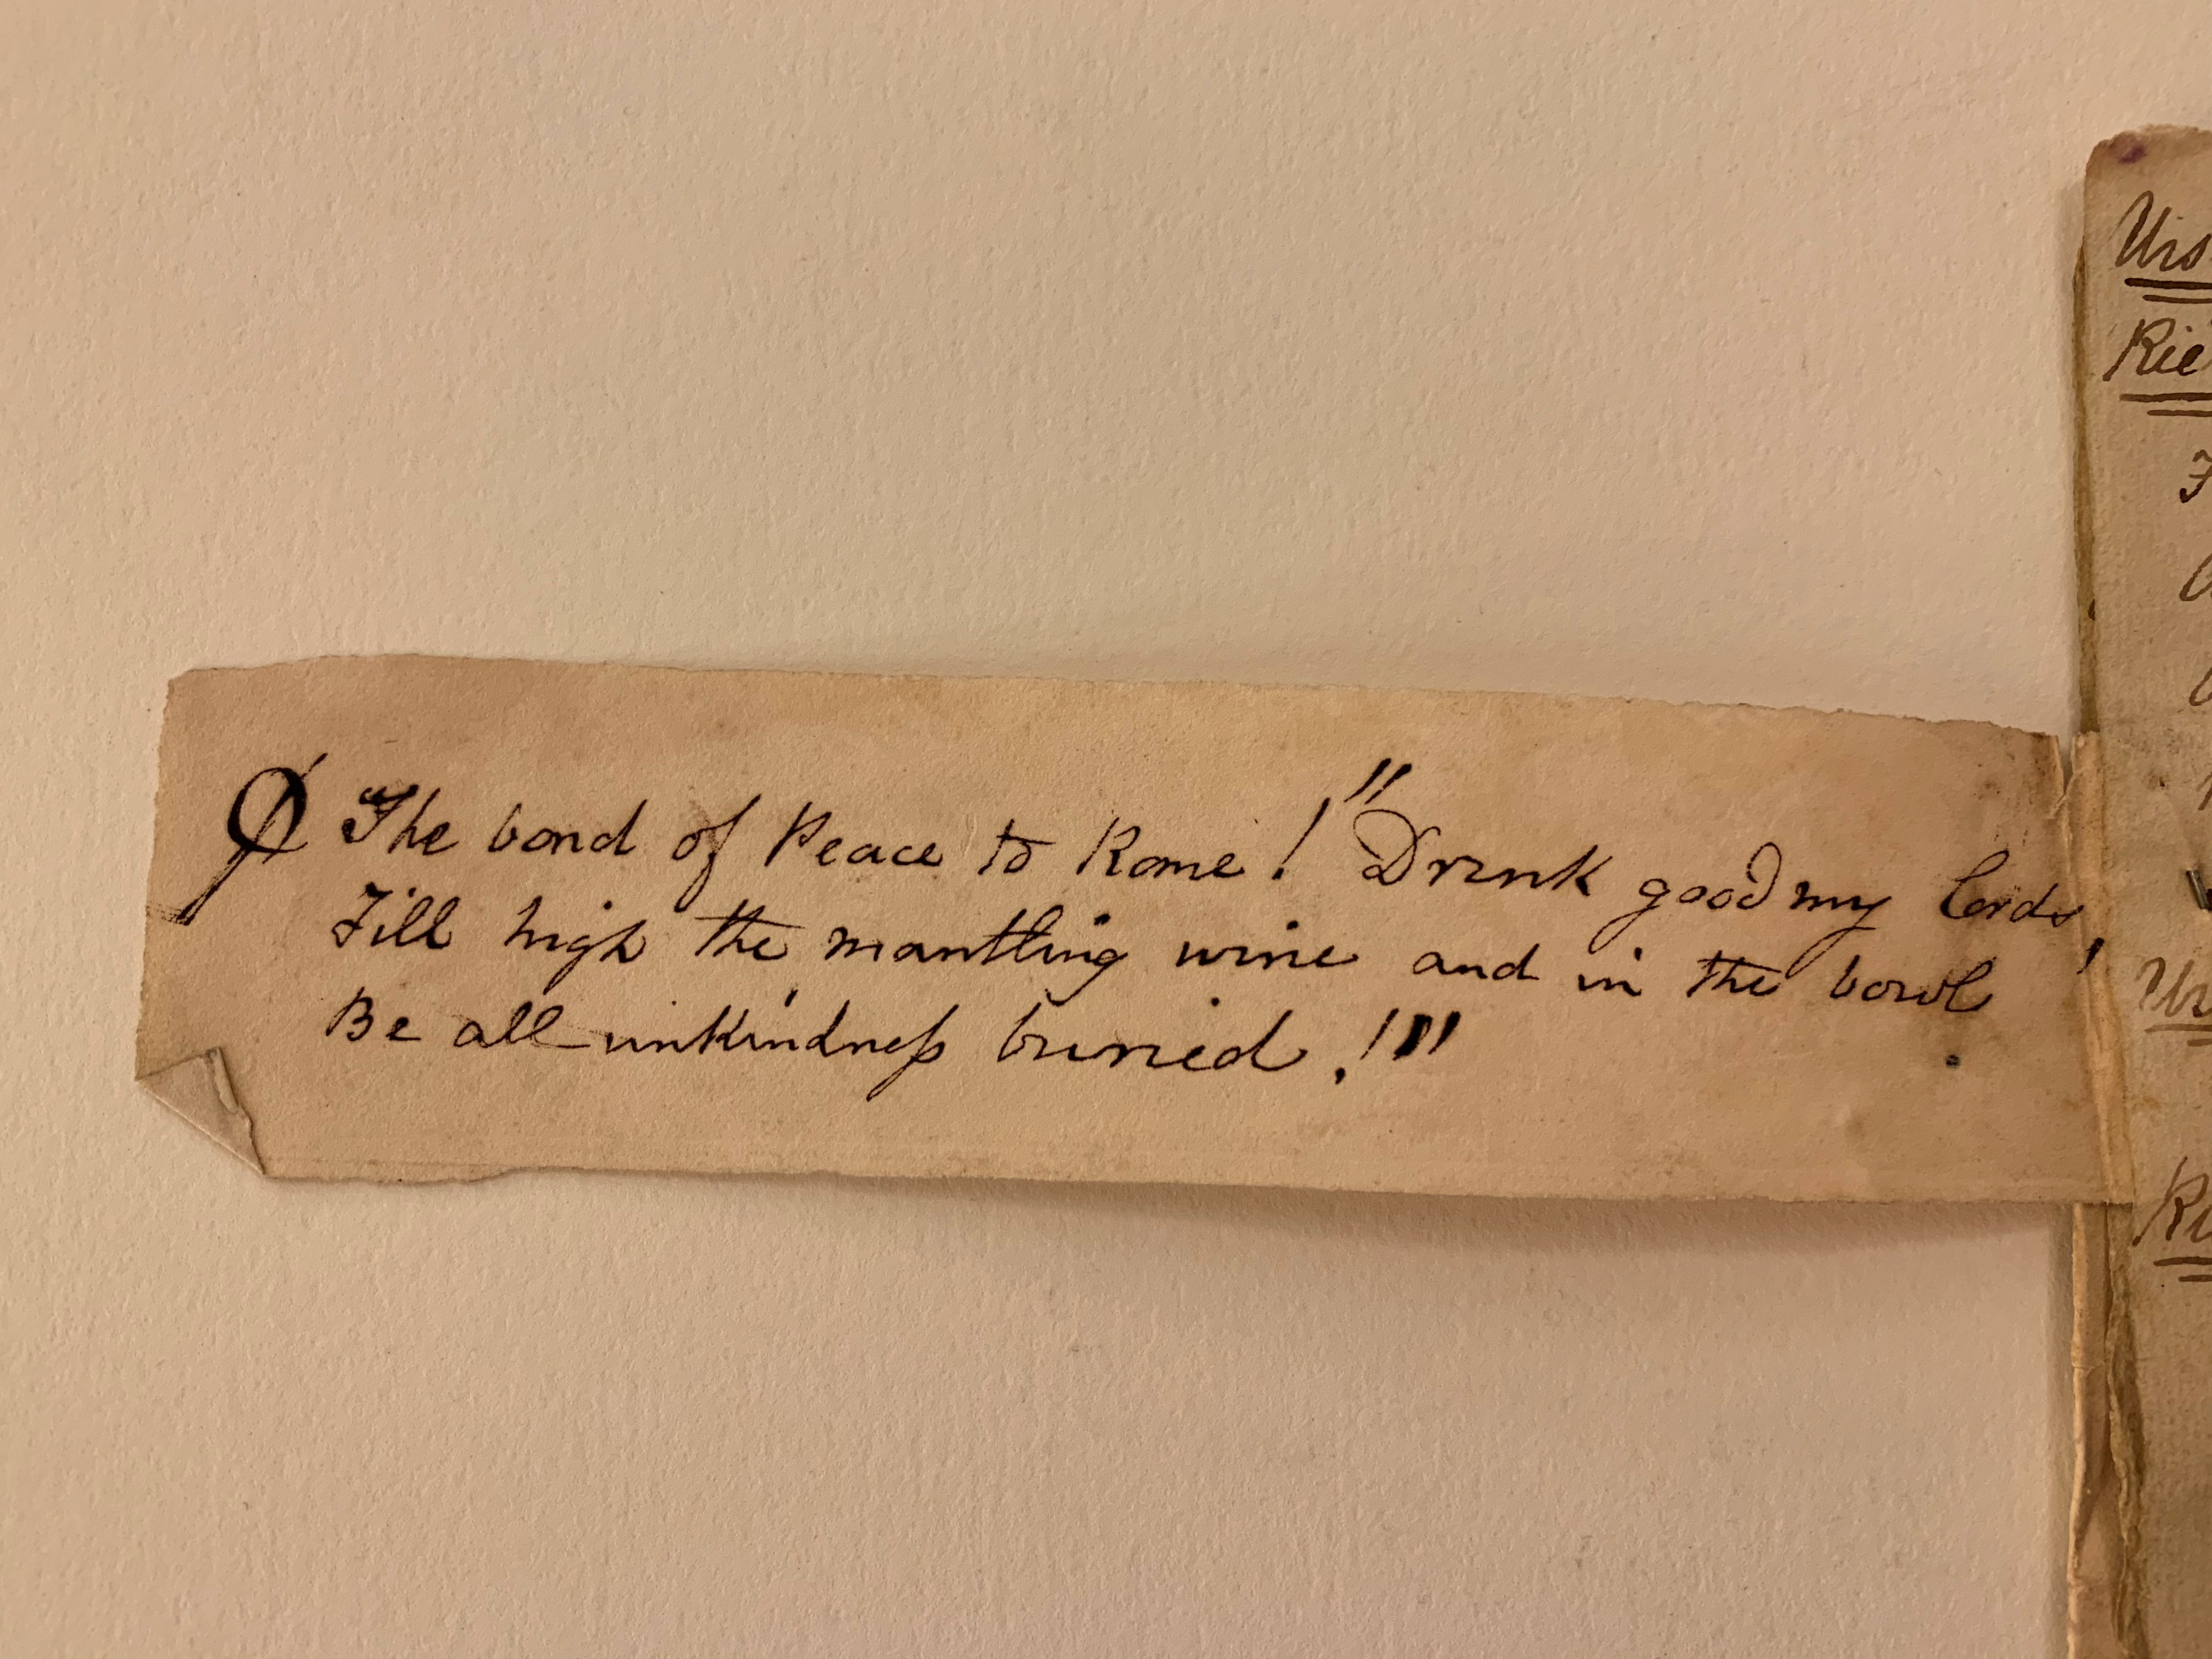 "The bond of Peace to Rome!" Drink good my lords,
Fill high the mantling wine and in the bowl
Be all unkindness buried!!"